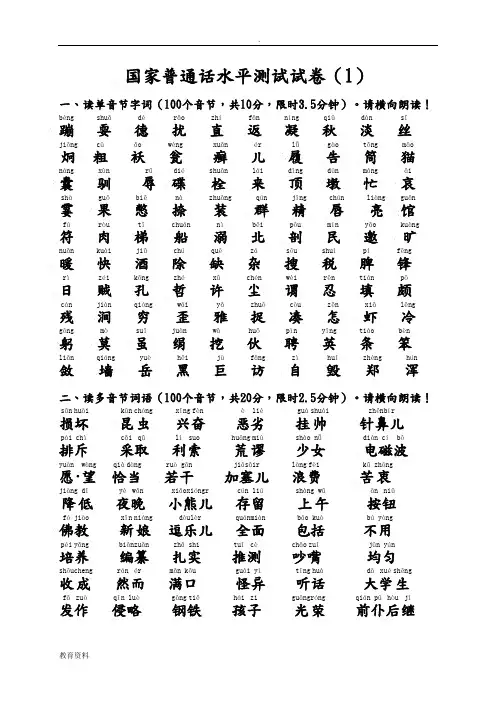 国家普通话水平测试试卷（1）
一、读单音节字词（100个音节，共10分，限时3.5分钟）。请横向朗读！
bèng shuǎ dé rǎo zhí fǎn níng qiū dàn sī
蹦 耍 德 扰 直 返 凝 秋 淡 丝
jiǒng cū ǎo wèng xuǎn ér lǚ gào tǒng māo
炯 粗 袄 瓮 癣 儿 履 告 筒 猫
náng xùn rǔ dié shuān lái dǐng dūn máng āi
囊 驯 辱 碟 栓 来 顶 墩 忙 哀
shà guǒ biē nà zhuāng qún jīng chún liàng guǎn
霎 果 憋 捺 装 群 精 唇 亮 馆
fú ròu tī chuán nì běi pōu mín yāo kuàng
符 肉 梯 船 溺 北 剖 民 邀 旷
nuǎn kuài jiǔ chú quē zá sōu shuì pí fēng
暖 快 酒 除 缺 杂 搜 税 脾 锋
rì zéi kǒng zhé xǔ chén wèi rěn tián pō
日 贼 孔 哲 许 尘 谓 忍 填 颇
cán jiàn qióng wāi yǎ zhuō còu zěn xiā lěng
残 涧 穷 歪 雅 捉 凑 怎 虾 冷
gōng mò suī juàn wā huǒ pìn yīng tiáo bèn
躬 莫 虽 绢 挖 伙 聘 英 条 笨
liǎn qiáng yuè hēi jù fǎng zì huǐ zhèng hún
敛 墙 岳 黑 巨 访 自 毁 郑 浑
二、读多音节词语（100个音节，共20分，限时2.5分钟）。请横向朗读！
sǔn huài kūn chóng xīng fèn è liè guà shuài zhēnbír
损坏 昆虫 兴奋 恶劣 挂帅 针鼻儿
pái chì cǎi qǔ lì suo huāng miù shào nǚ diàn cí bō
排斥 采取 利索 荒谬 少女 电磁波
yuàn wàng qià dàng ruò gān jiāsāir làng fèi kǔ zhōng
愿·望 恰当 若干 加塞儿 浪费 苦衷
jiàng dī yè wǎn xiǎoxióngr cún liú shàng wǔ àn niǔ
降低 夜晚 小熊儿 存留 上午 按钮
fó jiào xīn niáng dòulèr quánmiàn bāo kuò bù yòng
佛教 新娘 逗乐儿 全面 包括 不用
péi yǎng biānzuǎn zhā shi tuī cè chǎo zuǐ jūn yún
培养 编纂 扎实 推测 吵嘴 均匀
shōucheng rán ér mǎn kǒu guài yì tīng huà dà xué shēng
收成 然而 满口 怪异 听话 大学生
fā zuò qīn lüè gāng tiě hái zi guāngróng qián pū hòu jì
发作 侵略 钢铁 孩子 光荣 前仆后继
教育资料